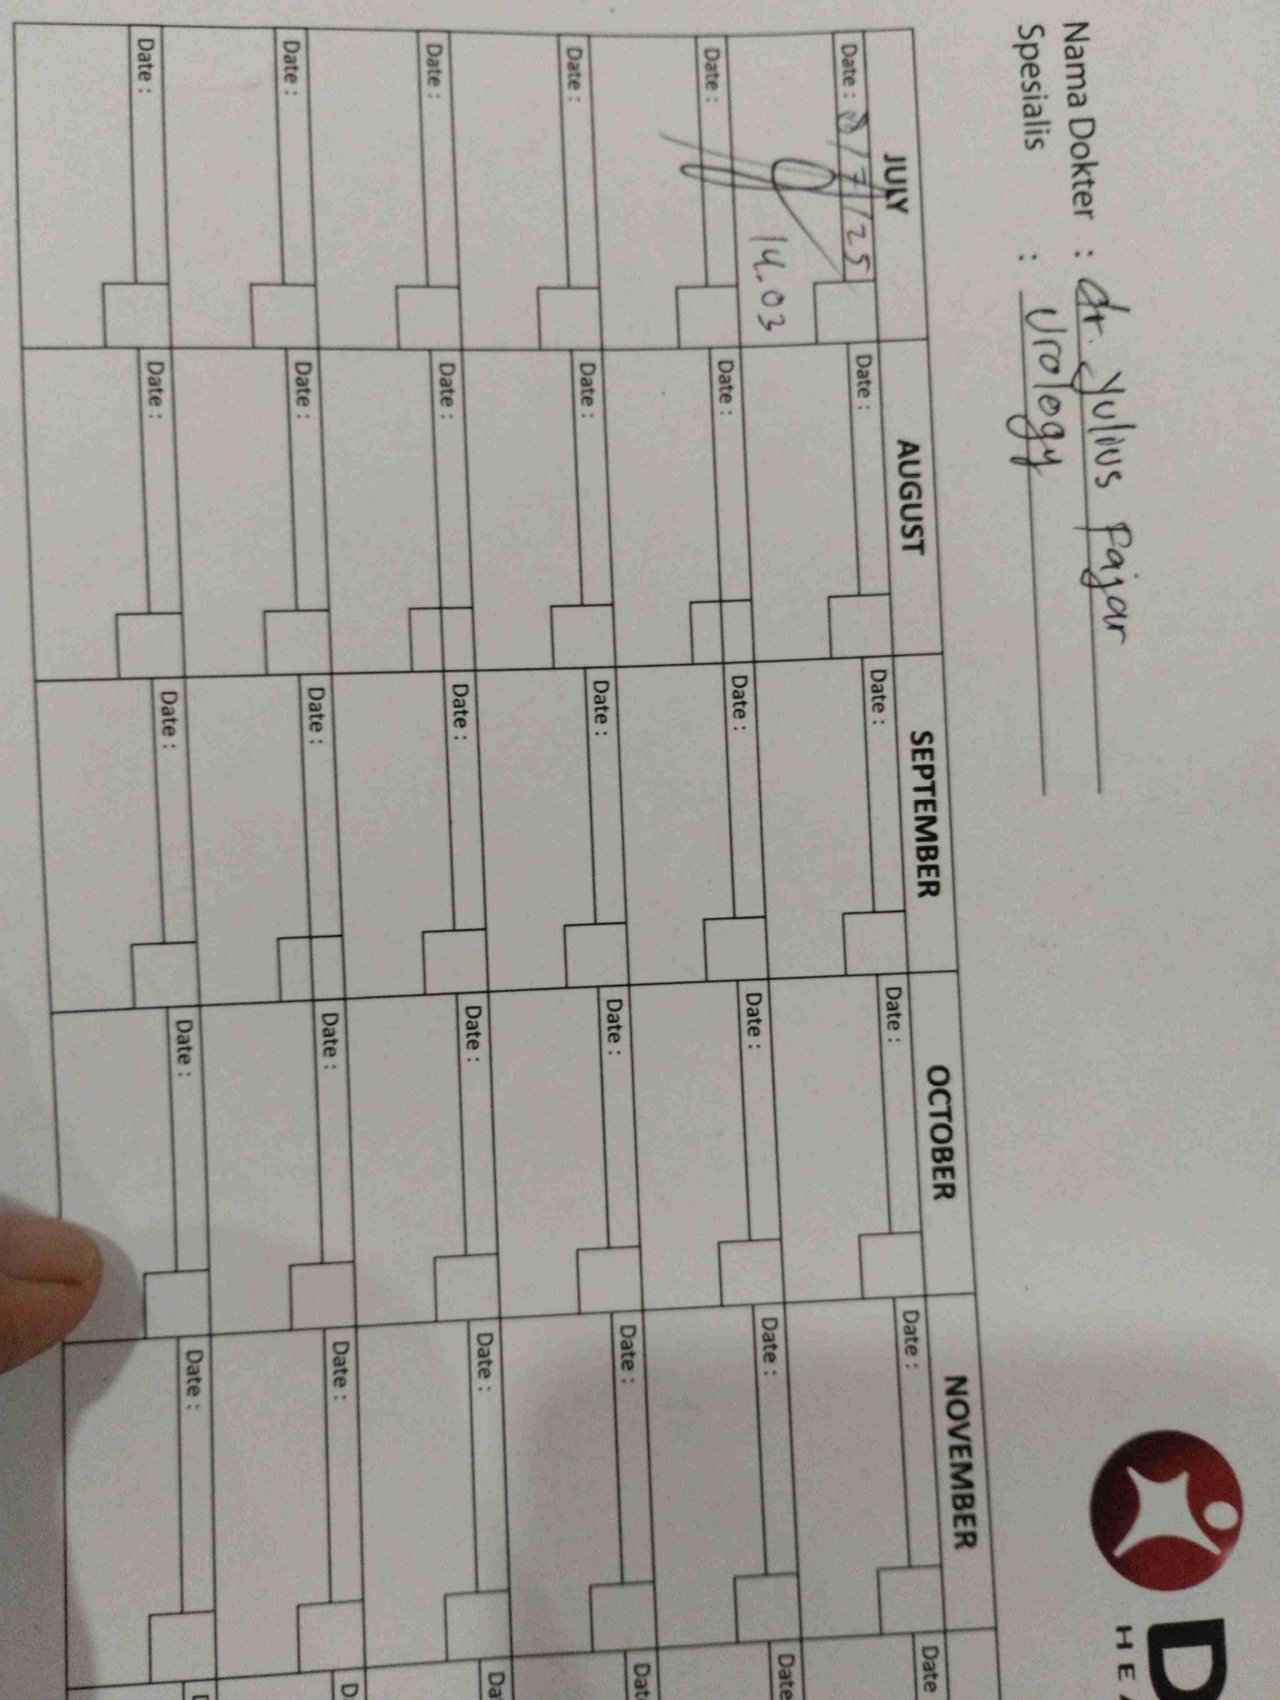 Nama Dokter : dr. Yulius Pajar
Spesialis : Urology
JULY AUGUST SEPTEMBER OCTOBER NOVEMBER
Date : 8/7/25 Date : Date : Date : Date : Date
14.03
Date : Date : Date : Date : Date : Date
Date : Date : Date : Date : Date : Dat
Date : Date : Date : Date : Date : Da
Date : Date : Date : Date : Date : D
Date : Date : Date : Date : Date :